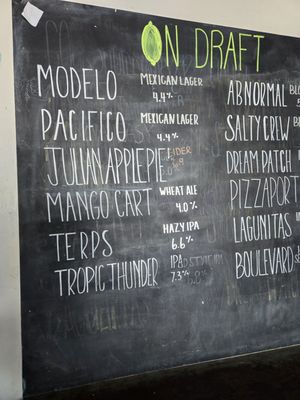 ON DRAFT
MODELO MEXICAN LAGER
4.4%
PACIFICO MEXICAN LAGER
4.4%
JULIAN APPLE PIE CIDER
6.9
MANGO CART WHEAT ALE
4.0%
TERPS HAZY IPA
6.6%
TROPIC THUNDER IPA
7.3%
ABNORMAL
SALTY CREW
DREAM PATCH
PIZZA PORT
LAGUNITAS
BOULEVARD